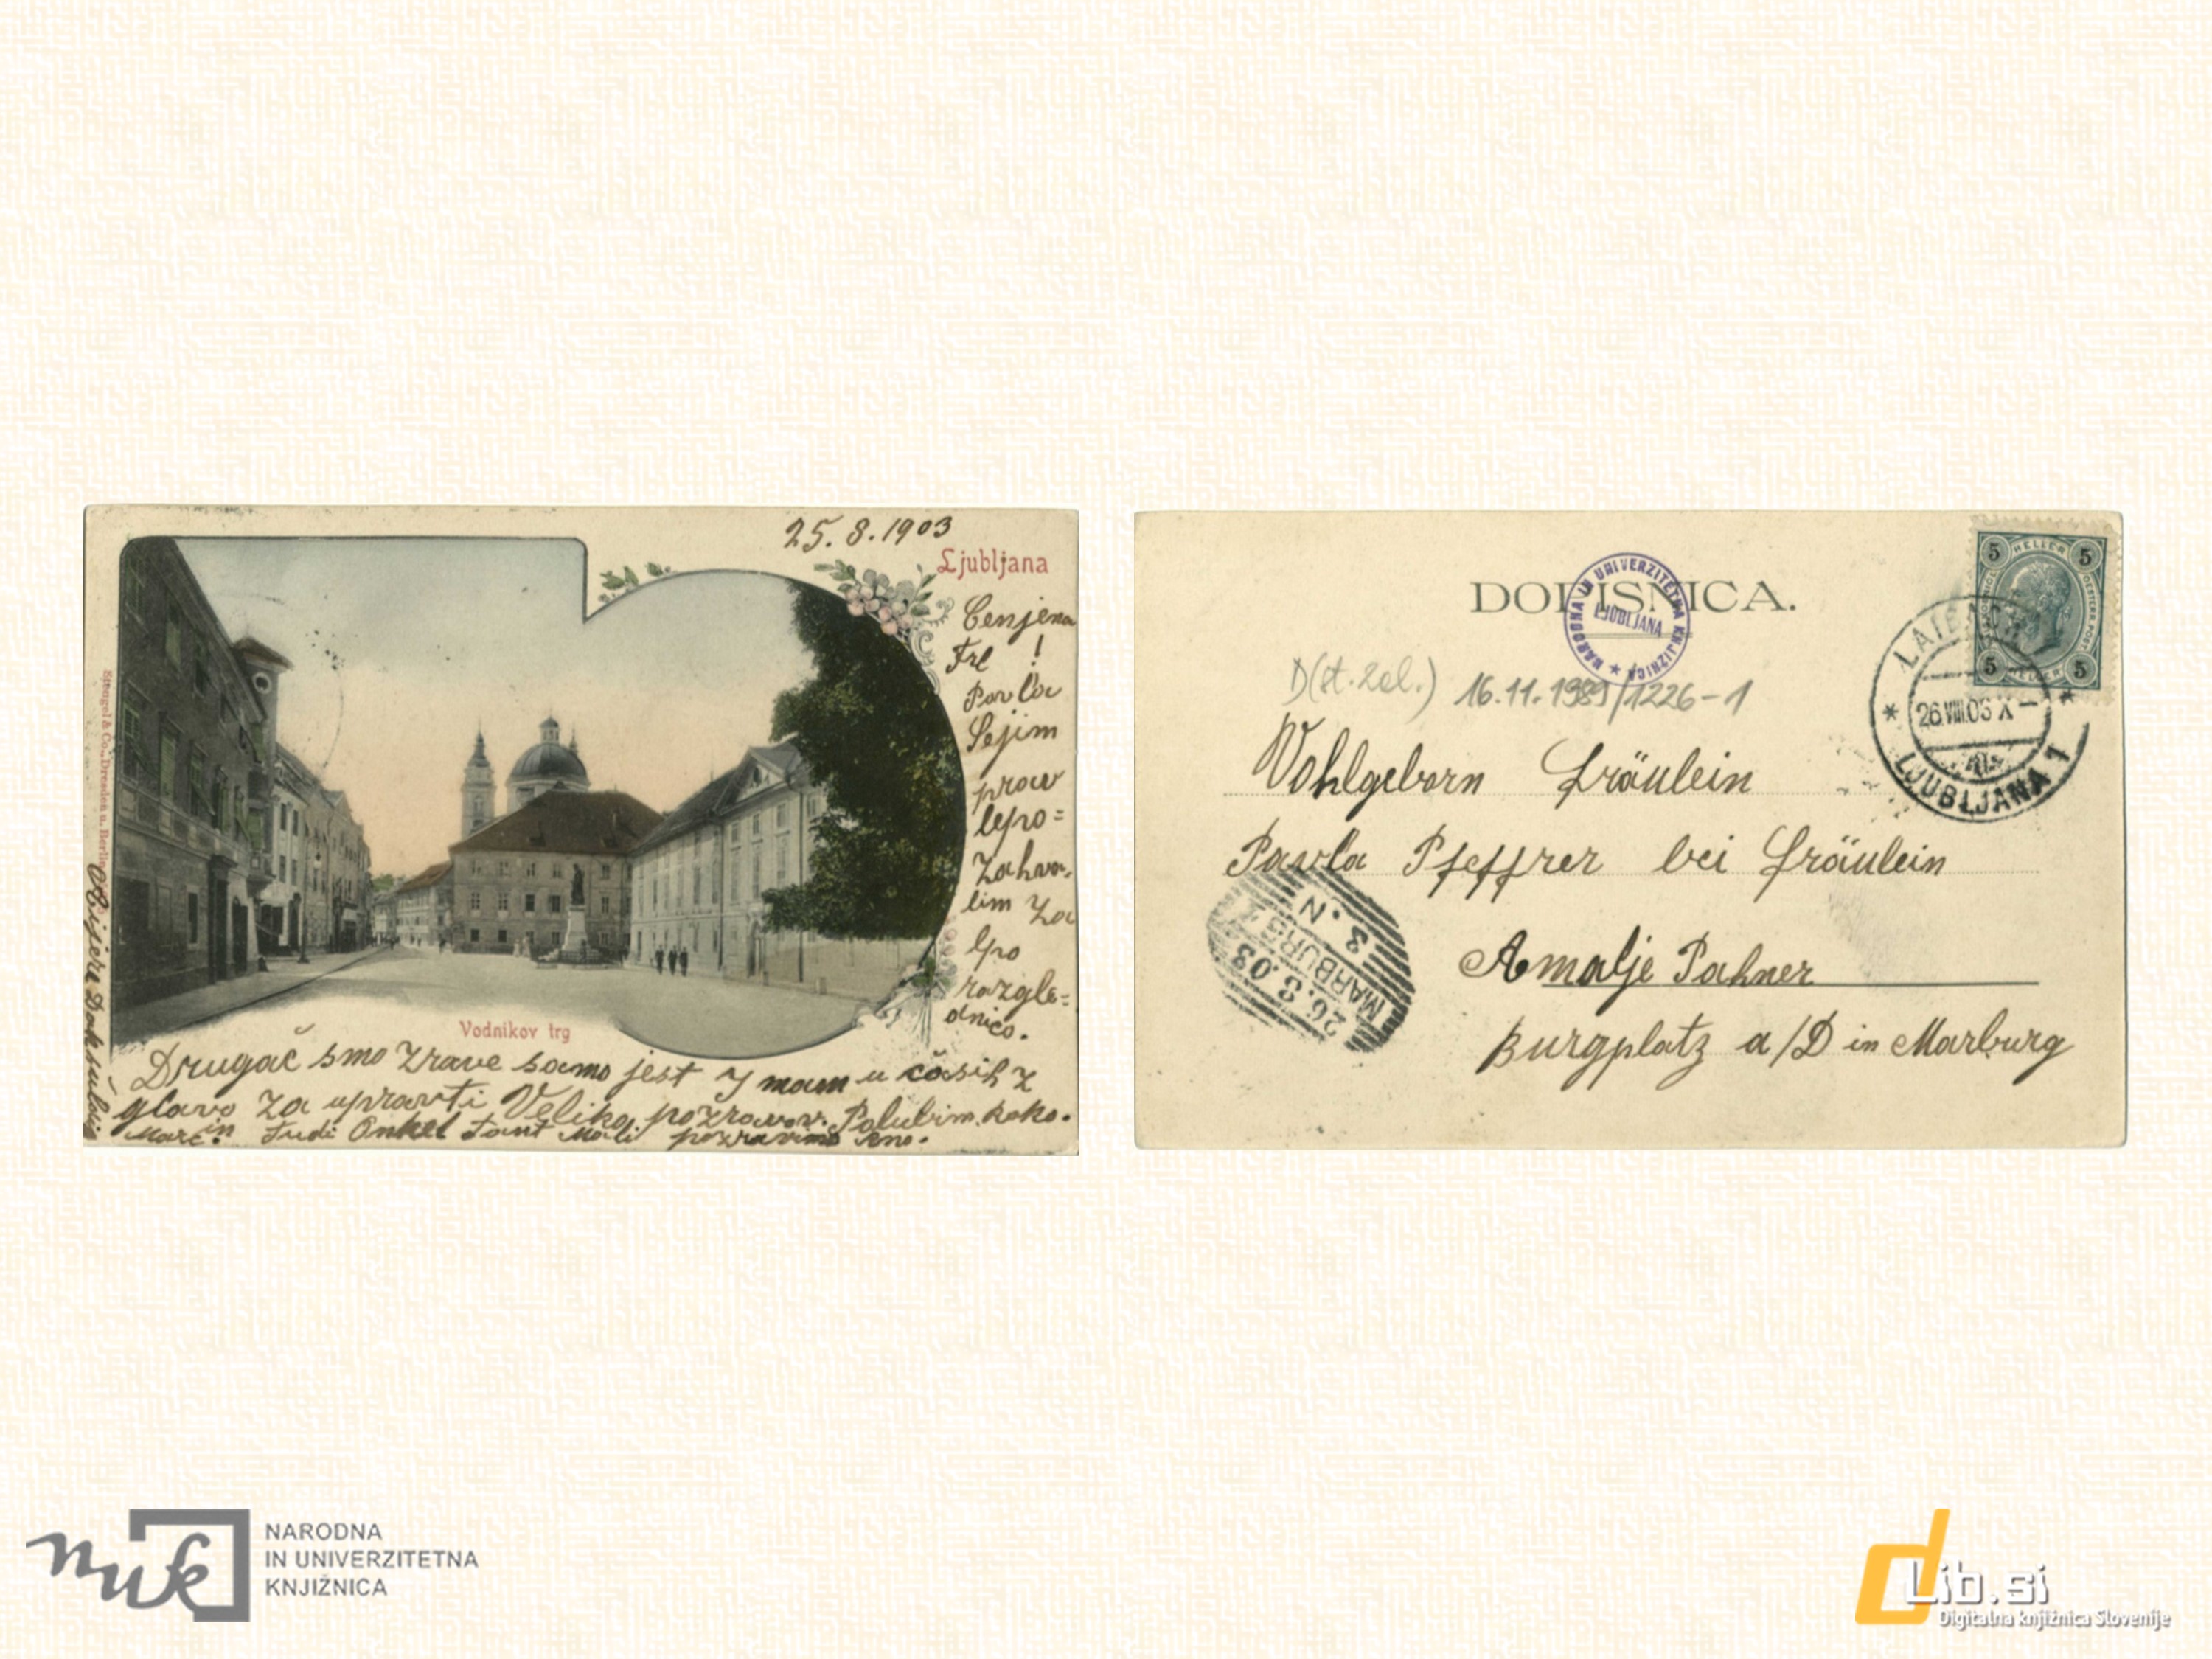 25.8.1903
Ljubljana
Cenjena
Frl !
Pavla
Sejim
prow
lepo=
zahva,
lim za
lpo
razgle=
dnico.
Vodnikov trg
Stengel & Co., Dresden u. Berlin
Drugač smo zrave samo jest y mam u čásih z
glavo za upravti Veliko pozravov. Polubim. koko.
in Tudi Onkel Tant Mali pozravimo
DOPISNICA.
NARODNA IN UNIVERZITETNA KNJIŽNICA
LJUBLJANA
5 HELLER 5
5 HELLER 5
LAIBACH
26.VIII.03 X-
LJUBLJANA 1
D(st. zal.) 16.11.1989/1226-1
Wohlgeborn Fräulein
Pavla Pfeffrer bei Fräulein
Amalje Pahner
Burgplatz a/D in Marburg
MARBURG
26.8.03
3.N
nuk
NARODNA
IN UNIVERZITETNA
KNJIŽNICA
dLib.si
Digitalna knjižnica Slovenije